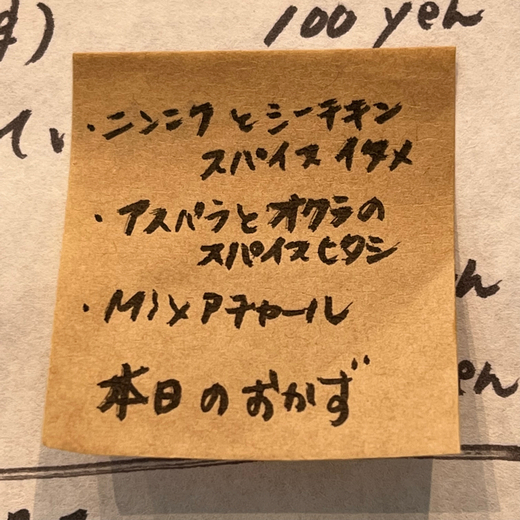 す)
100 yen
てい
・ニンニクとシーチキン
スパイスイタメ
・アスパラとオクラの
スパイスヒタシ
・MIXアチャール
本日のおかず
en
en